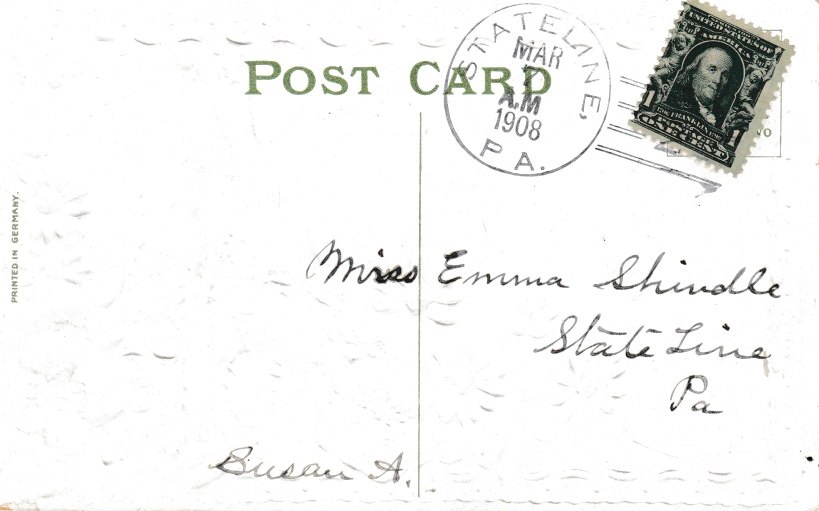 POST CARD
STATELINE,
MAR
7
A.M
1908
PA.
UNITED STATES OF
AMERICA
1 FRANKLIN 1
POSTAGE
ONE CENT
PRINTED IN GERMANY.
Miss Emma Shindle
State Line
Pa
Susan A.